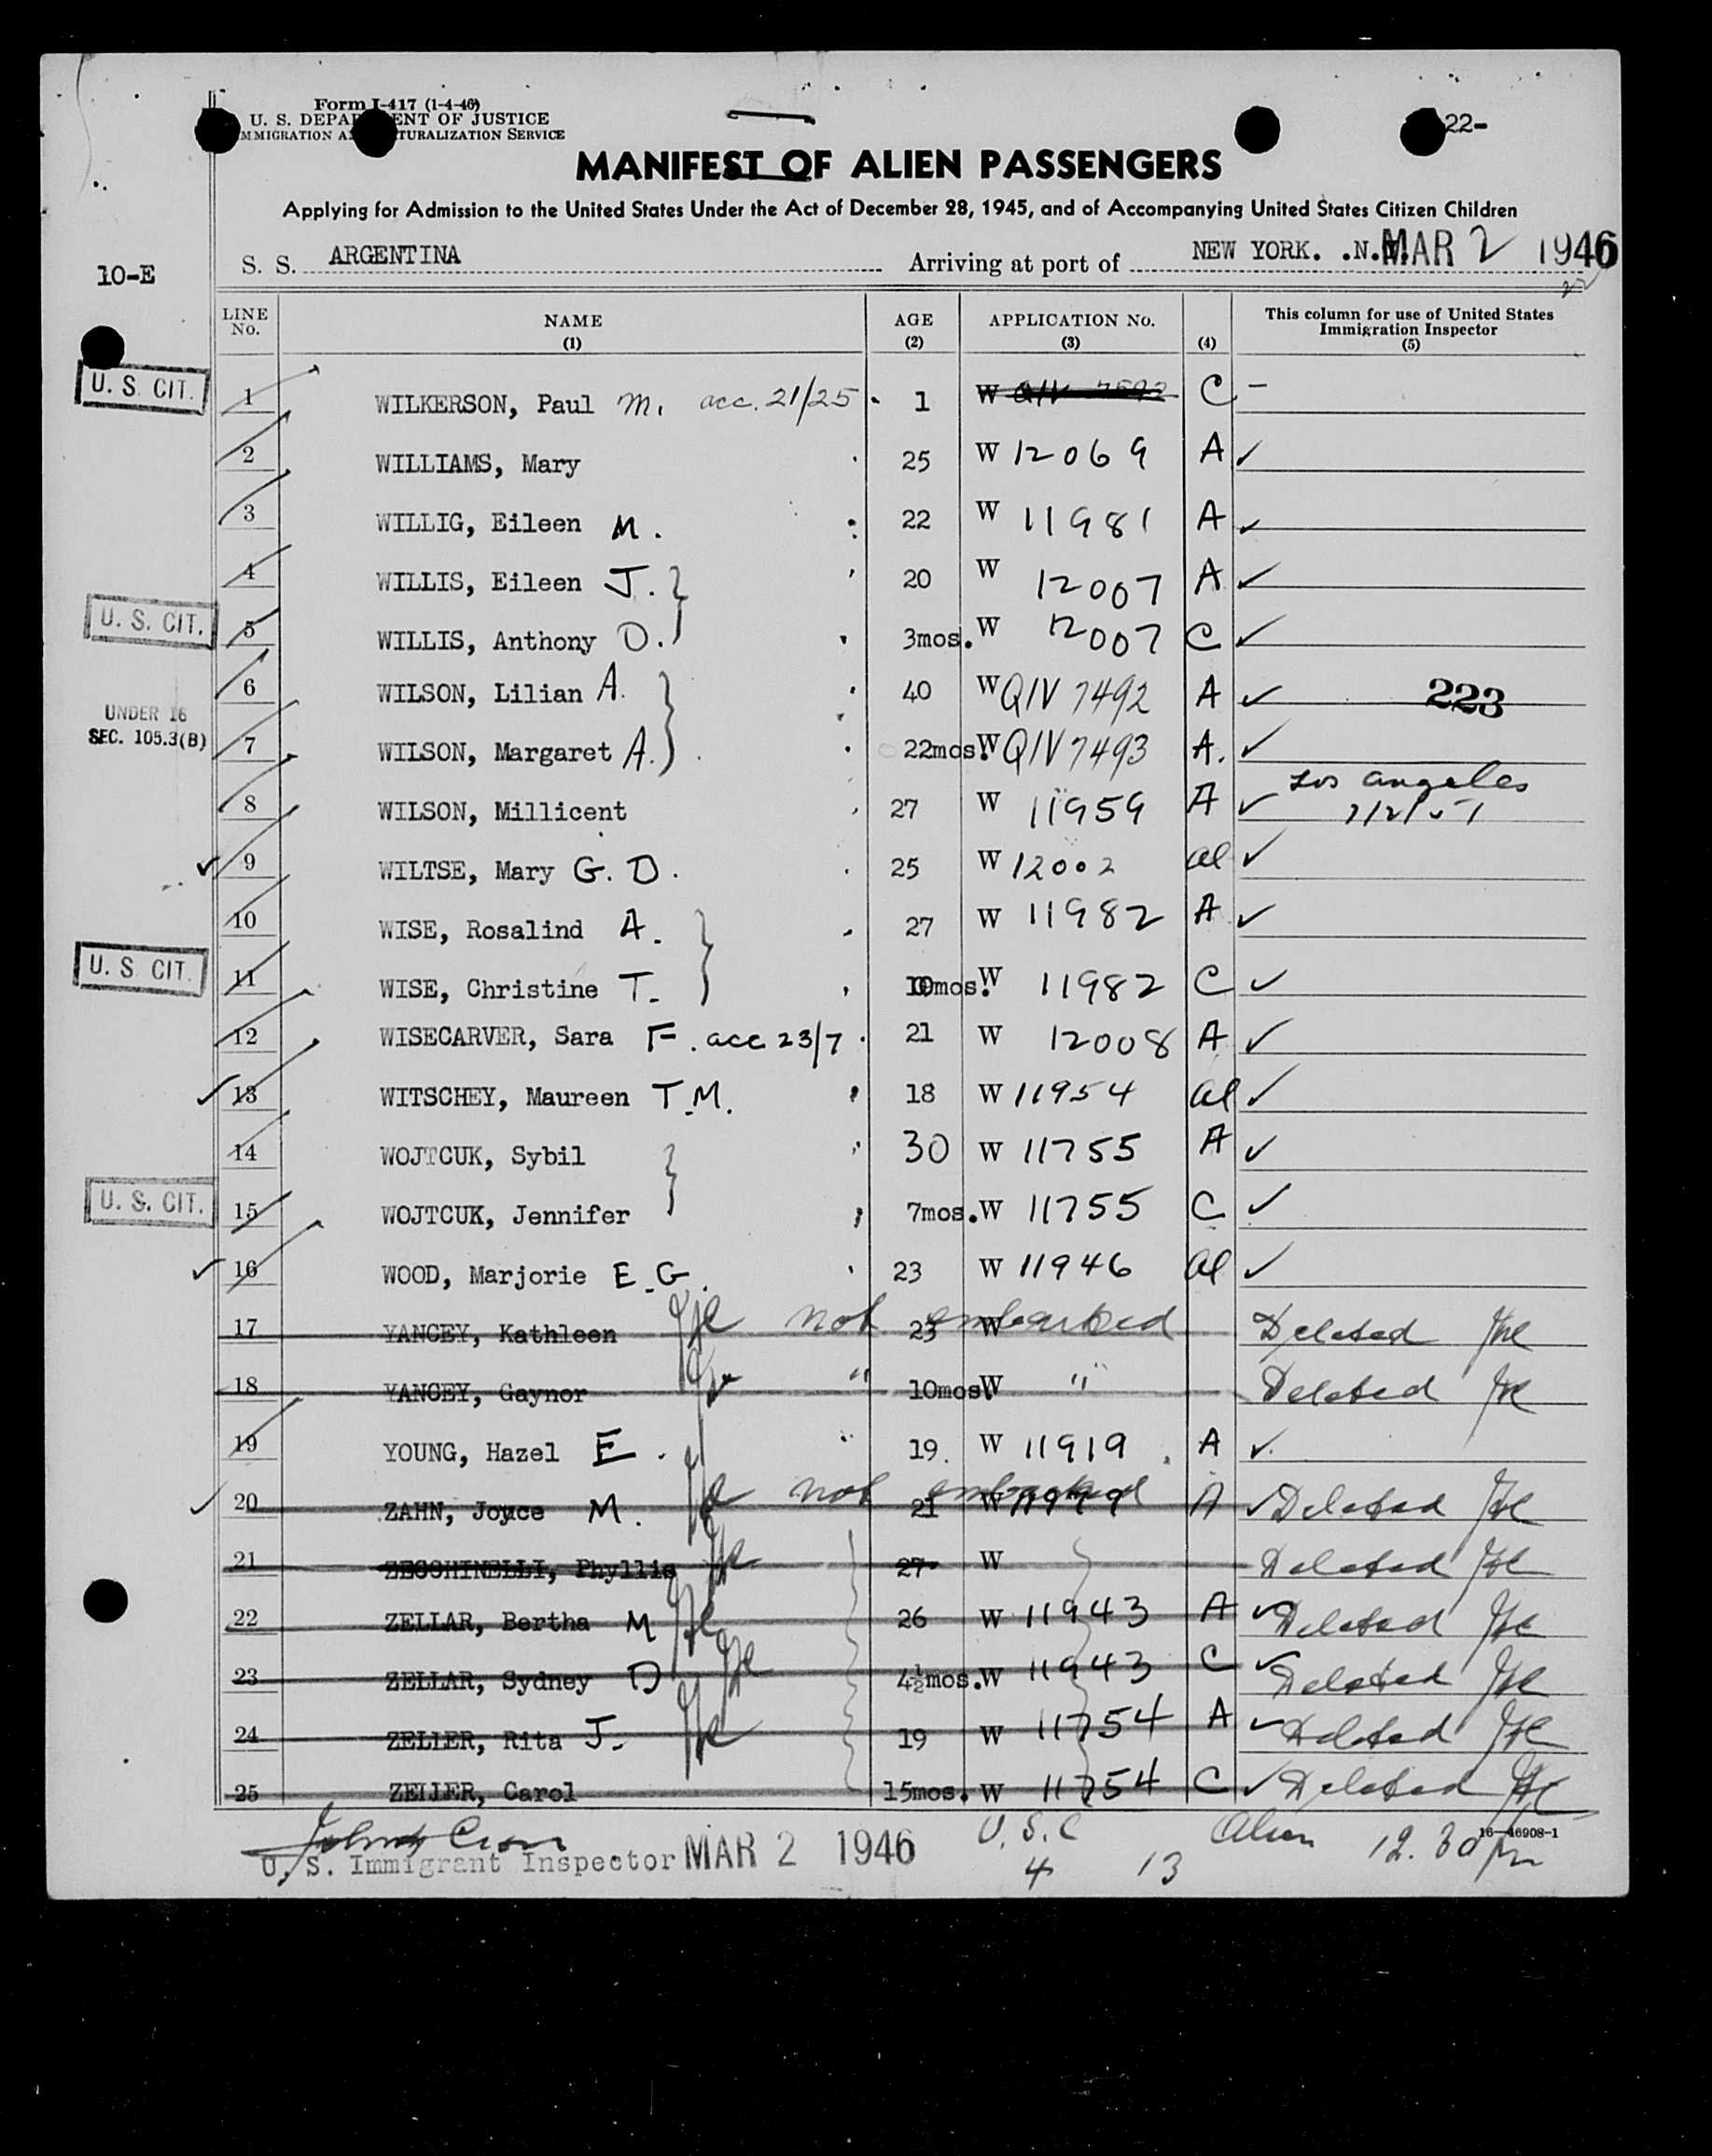 Form I-417 (1-4-46)
U. S. DEPARTMENT OF JUSTICE
IMMIGRATION AND NATURALIZATION SERVICE
22-
MANIFEST OF ALIEN PASSENGERS
Applying for Admission to the United States Under the Act of December 28, 1945, and of Accompanying United States Citizen Children
10-E
S. S. ARGENTINA Arriving at port of NEW YORK. .N. MAR 2 1946
22
LINE No. NAME (1) AGE (2) APPLICATION No. (3) (4) This column for use of United States Immigration Inspector (5)
U. S. CIT. 1 WILKERSON, Paul M. acc. 21/25 1 W QIV C -
2 WILLIAMS, Mary 25 W 12069 A ✓
3 WILLIG, Eileen M. 22 W 11981 A ✓
4 WILLIS, Eileen J. 20 W 12007 A ✓
U. S. CIT. 5 WILLIS, Anthony D. 3mos. W 12007 C ✓
6 WILSON, Lilian A. 40 W QIV 7492 A ✓ 223
UNDER 16 SEC. 105.3(B) 7 WILSON, Margaret A. 22mos. W QIV 7493 A. ✓
8 WILSON, Millicent 27 W 11959 A ✓ Los Angeles
✓ 9 WILTSE, Mary G. D. 25 W 12002 al ✓
10 WISE, Rosalind A. 27 W 11982 A ✓
U. S. CIT. 11 WISE, Christine T. 10mos. W 11982 C ✓
12 WISECARVER, Sara F. acc 23/7 21 W 12008 A ✓
✓ 13 WITSCHEY, Maureen T.M. 18 W 11954 al ✓
14 WOJTCUK, Sybil 30 W 11755 A ✓
U. S. CIT. 15 WOJTCUK, Jennifer 7mos. W 11755 C ✓
✓ 16 WOOD, Marjorie E.G. 23 W 11946 al ✓
17 YANCEY, Kathleen not embarked 23 W Deleted
18 YANCEY, Gaynor " 10mos. W " Deleted
19 YOUNG, Hazel E. 19. W 11919 A ✓
✓ 20 ZAHN, Joyce M. not embarked 21 W 11999 A ✓ Deleted
21 ZECCHINELLI, Phyllis 27 W Deleted
22 ZELLAR, Bertha M 26 W 11943 A ✓ Deleted
23 ZELLAR, Sydney D. 4½mos. W 11943 C ✓ Deleted
24 ZELLER, Rita J. 19 W 11754 A ✓ Deleted
25 ZELLER, Carol 15mos. W 11754 C ✓ Deleted
16-46908-1
U. S. Immigrant Inspector MAR 2 1946 U.S.C 4 Alien 13 12.30 pm